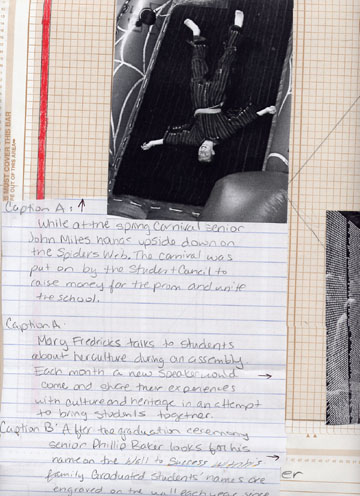 MUST COVER THIS BAR
OUT OF THIS AREA
Caption A:
While at the spring Carnival senior
John Miles hangs upside down on
the Spiders Web. The Carnival was
put on by the Student Council to
raise money for the prom and unite
the school.
Caption A:
Mary Fredricks talks to students
about her culture during an assembly.
Each month a new speaker would
come and share their experiences
with culture and heritage in an attempt
to bring students together.
Caption B: After the graduation ceremony
senior Phillip Baker looks for his
name on the Wall to Success
family. Graduated Students' names are
engraved on the wall each year
er